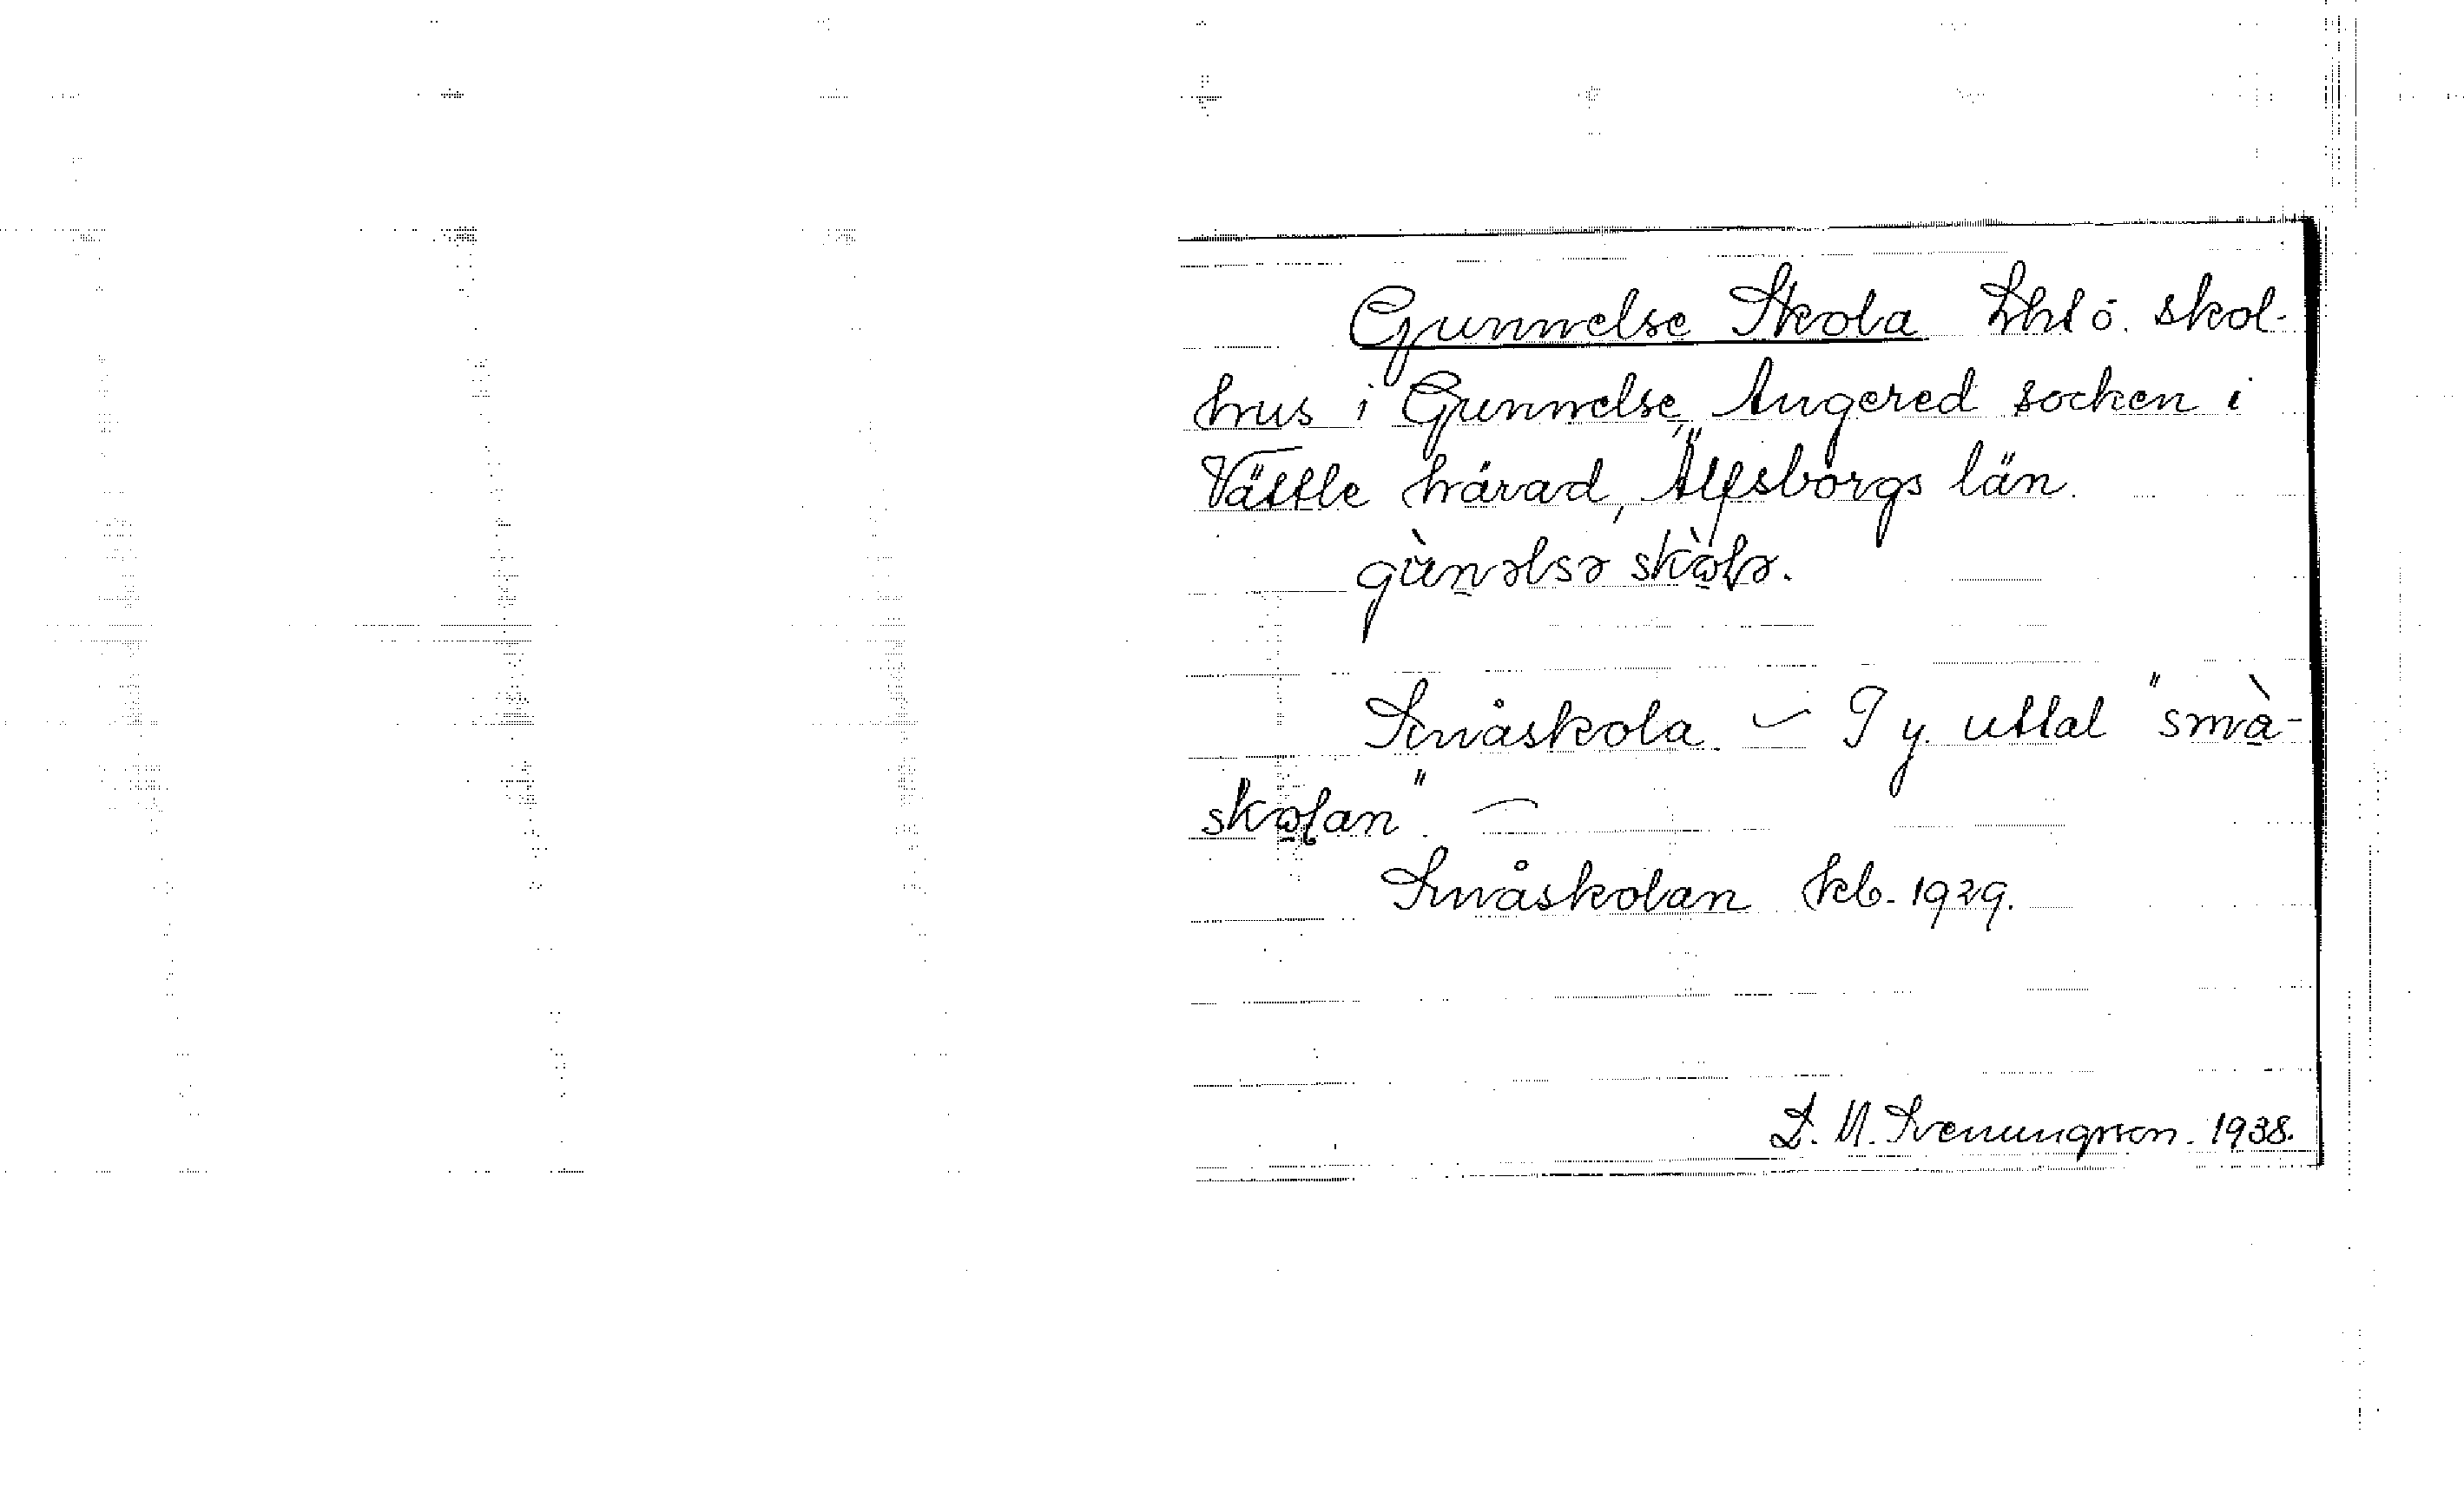 Gunnelse Skola Lht ö. skol-
hus i Gunnelse, Angered socken i
Vättle härad, Älfsborgs län.
gùnəlsə skɷ̀lə.
Småskola. — I y. uttal "små̀-
skɷlan". —
Småskolan kb. 1929.
D. N. Svenungsson. 1938.